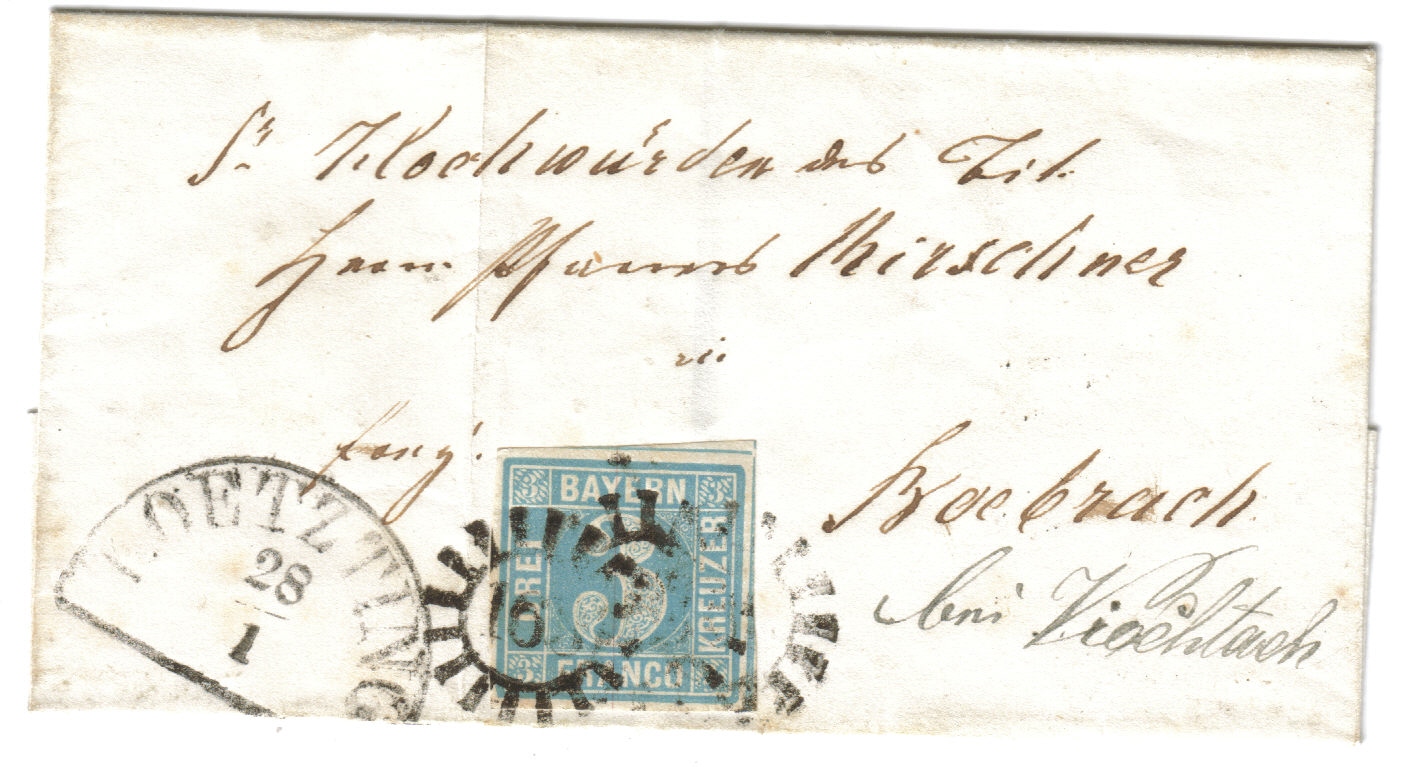 Sr. Hochwürden des Tit.
Herrn Pfarrers Kirschner
in
Boebrach
bei Viechtach
KOETZTING
28
1
BAYERN
DREI
3
KREUZER
FRANCO
3
3
3
3